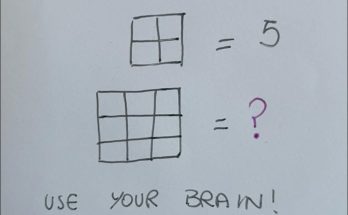 = 5
= ?
USE YOUR BRAIN!